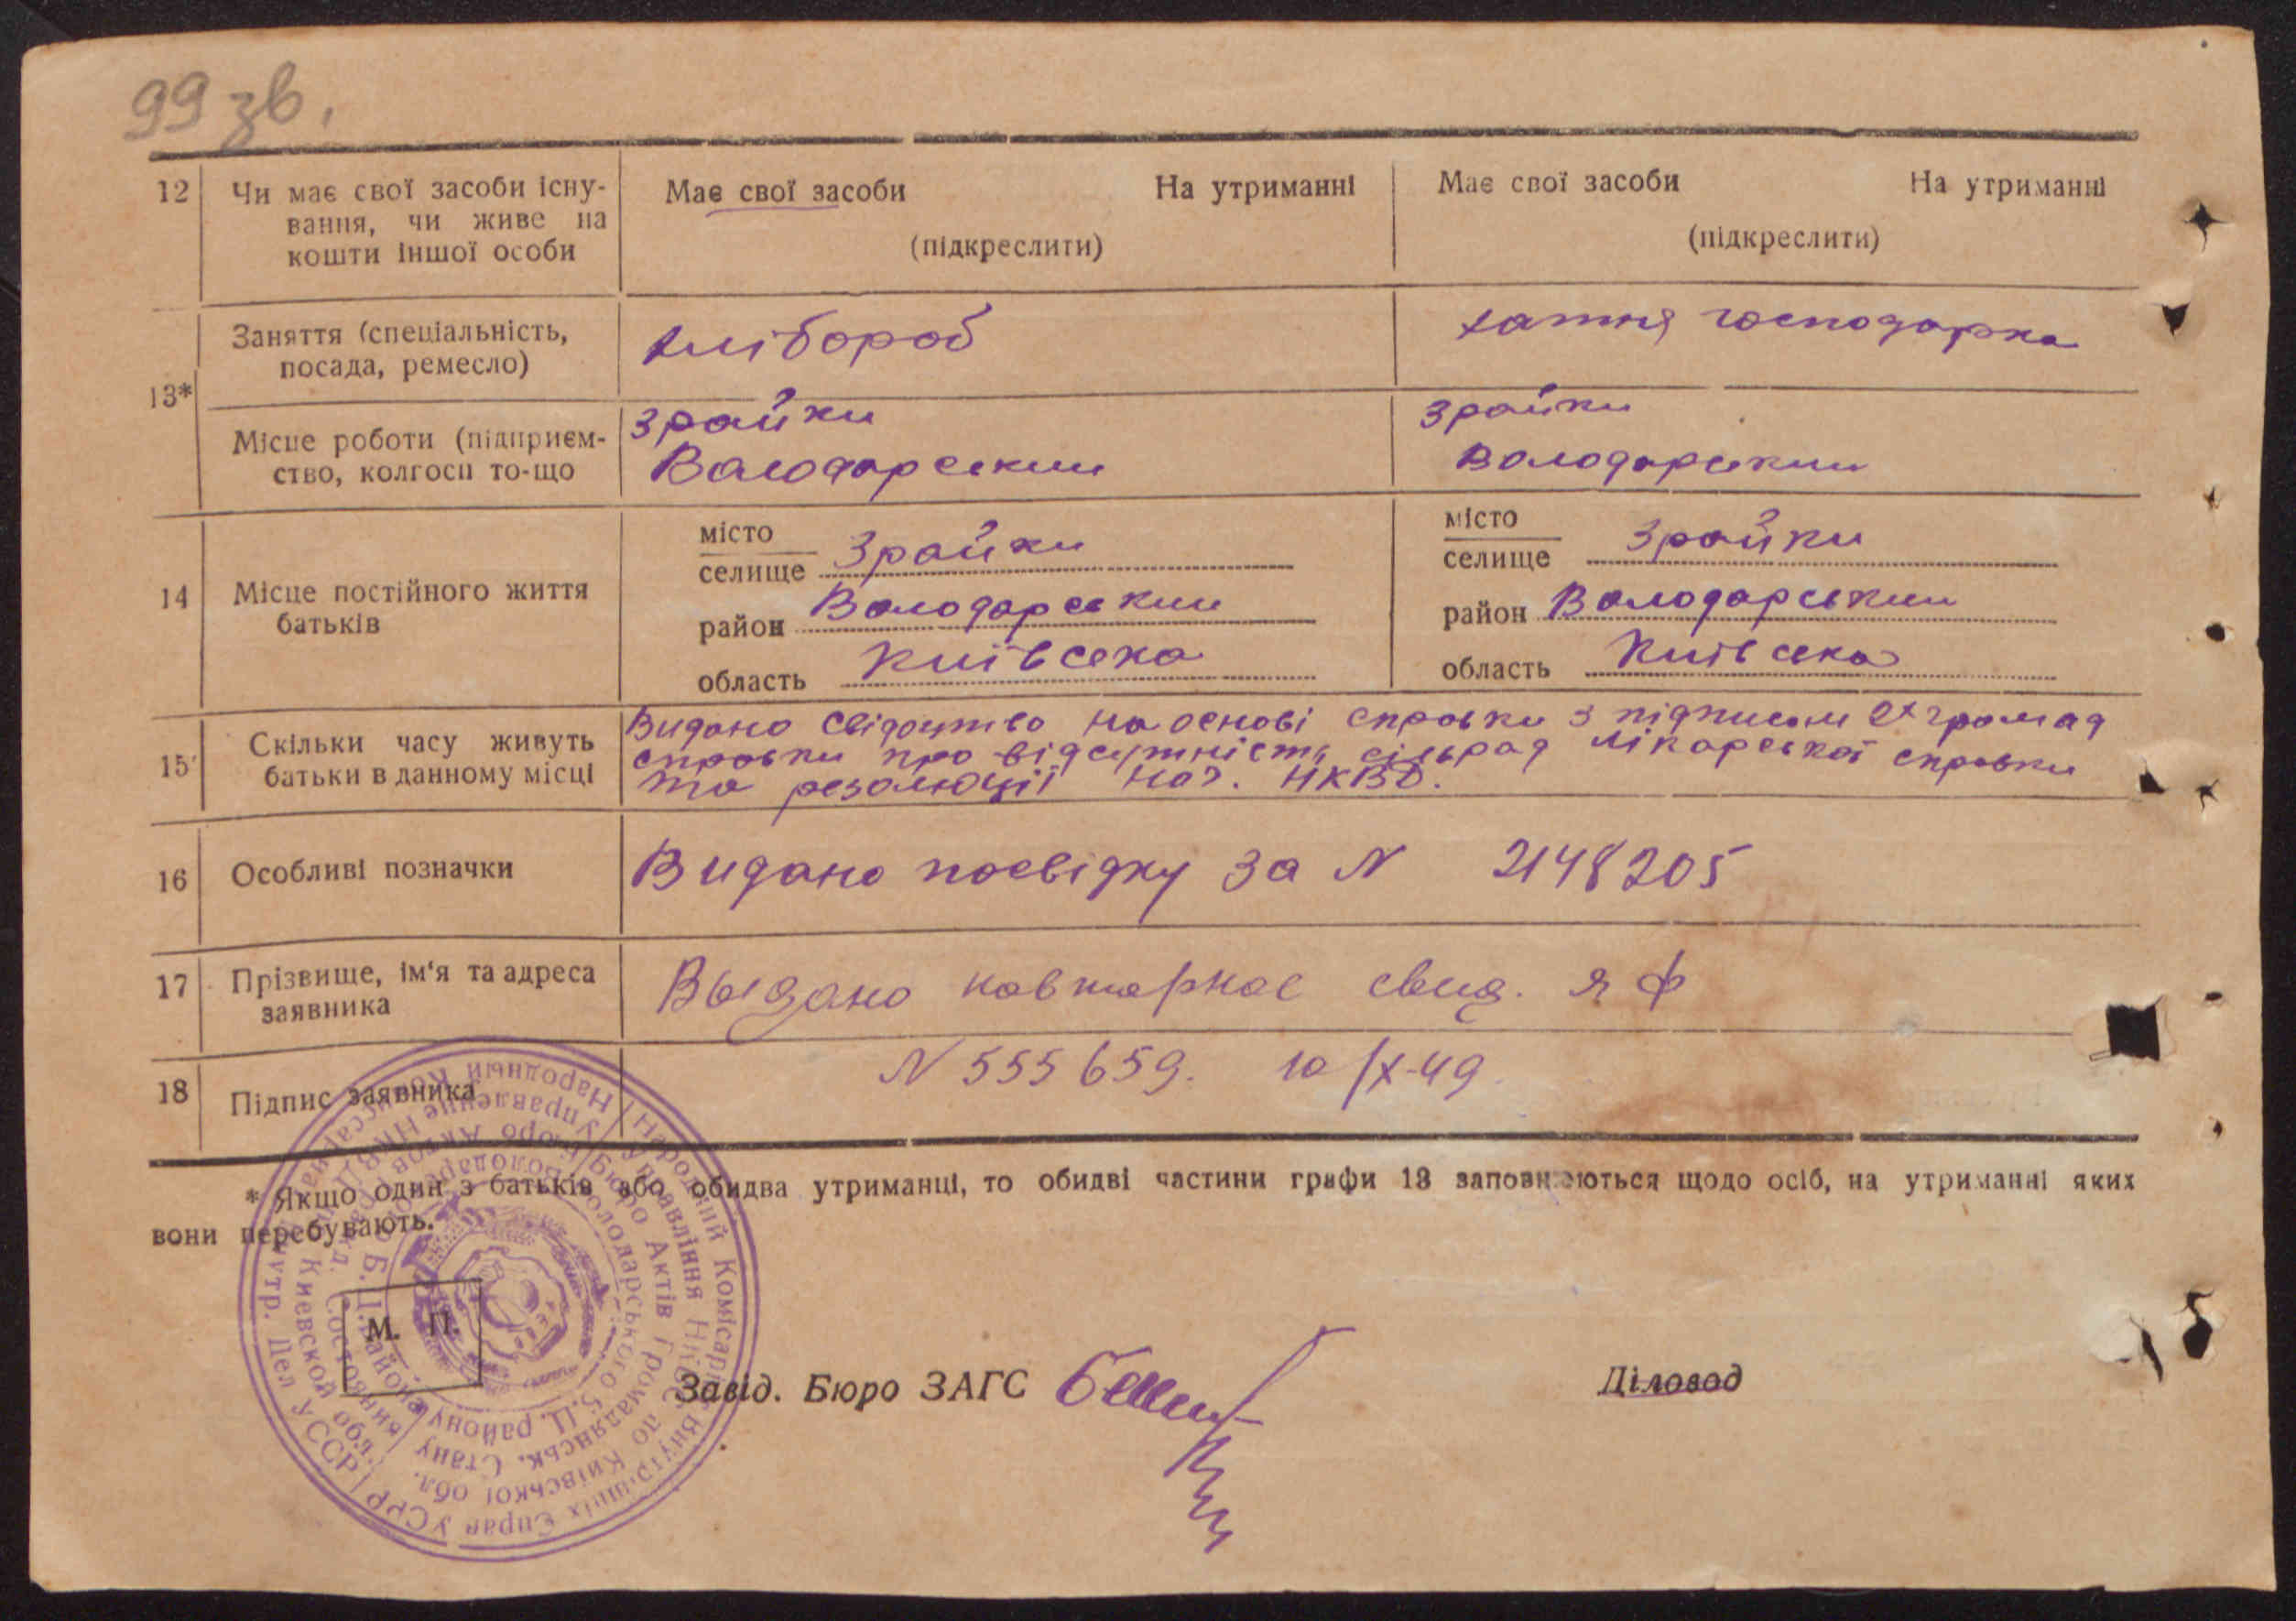 99 зв.
12 Чи має свої засоби існу- Має свої засоби На утриманні Має свої засоби На утриманні
вання, чи живе на
кошти іншої особи (підкреслити) (підкреслити)
Заняття (спеціальність, хлібороб хатня господарка
посада, ремесло)
13*
Зрайки Зрайки
Місце роботи (підприєм-
ство, колгосп то-що Володарський Володарський
місто місто
селище Зрайки селище Зрайки
14 Місце постійного життя
батьків район Володарський район Володарський
область Київська область Київська
Видано свідоцтво на основі справки з підписам 2х громад
15 Скільки часу живуть справки про відсутність сільрад лікарської справки
батьки в данному місці та резолюції нач. НКВД.
16 Особливі позначки Видано посвідку за N 2148205
17 Прізвище, ім'я та адреса Выдано повторное свид. я ф
заявника
18 Підпис заявника N 555659. 10/X-49.
* Якщо один з батьків або обидва утриманці, то обидві частини графи 13 заповнюються щодо осіб, на утриманні яких
вони перебувають.
М. П.
Завід. Бюро ЗАГС Діловод
Народний Комісаріат Внутрішніх Справ УСРР
Управління НКВС по Київської обл.
Бюро Актів Громадянськ. Стану
Володарського Б.Ц. району
Народный Комиссариат Внутр. Дел УССР
Управление НКВД Киевской обл.
Бюро Актов Гражд. Состояния